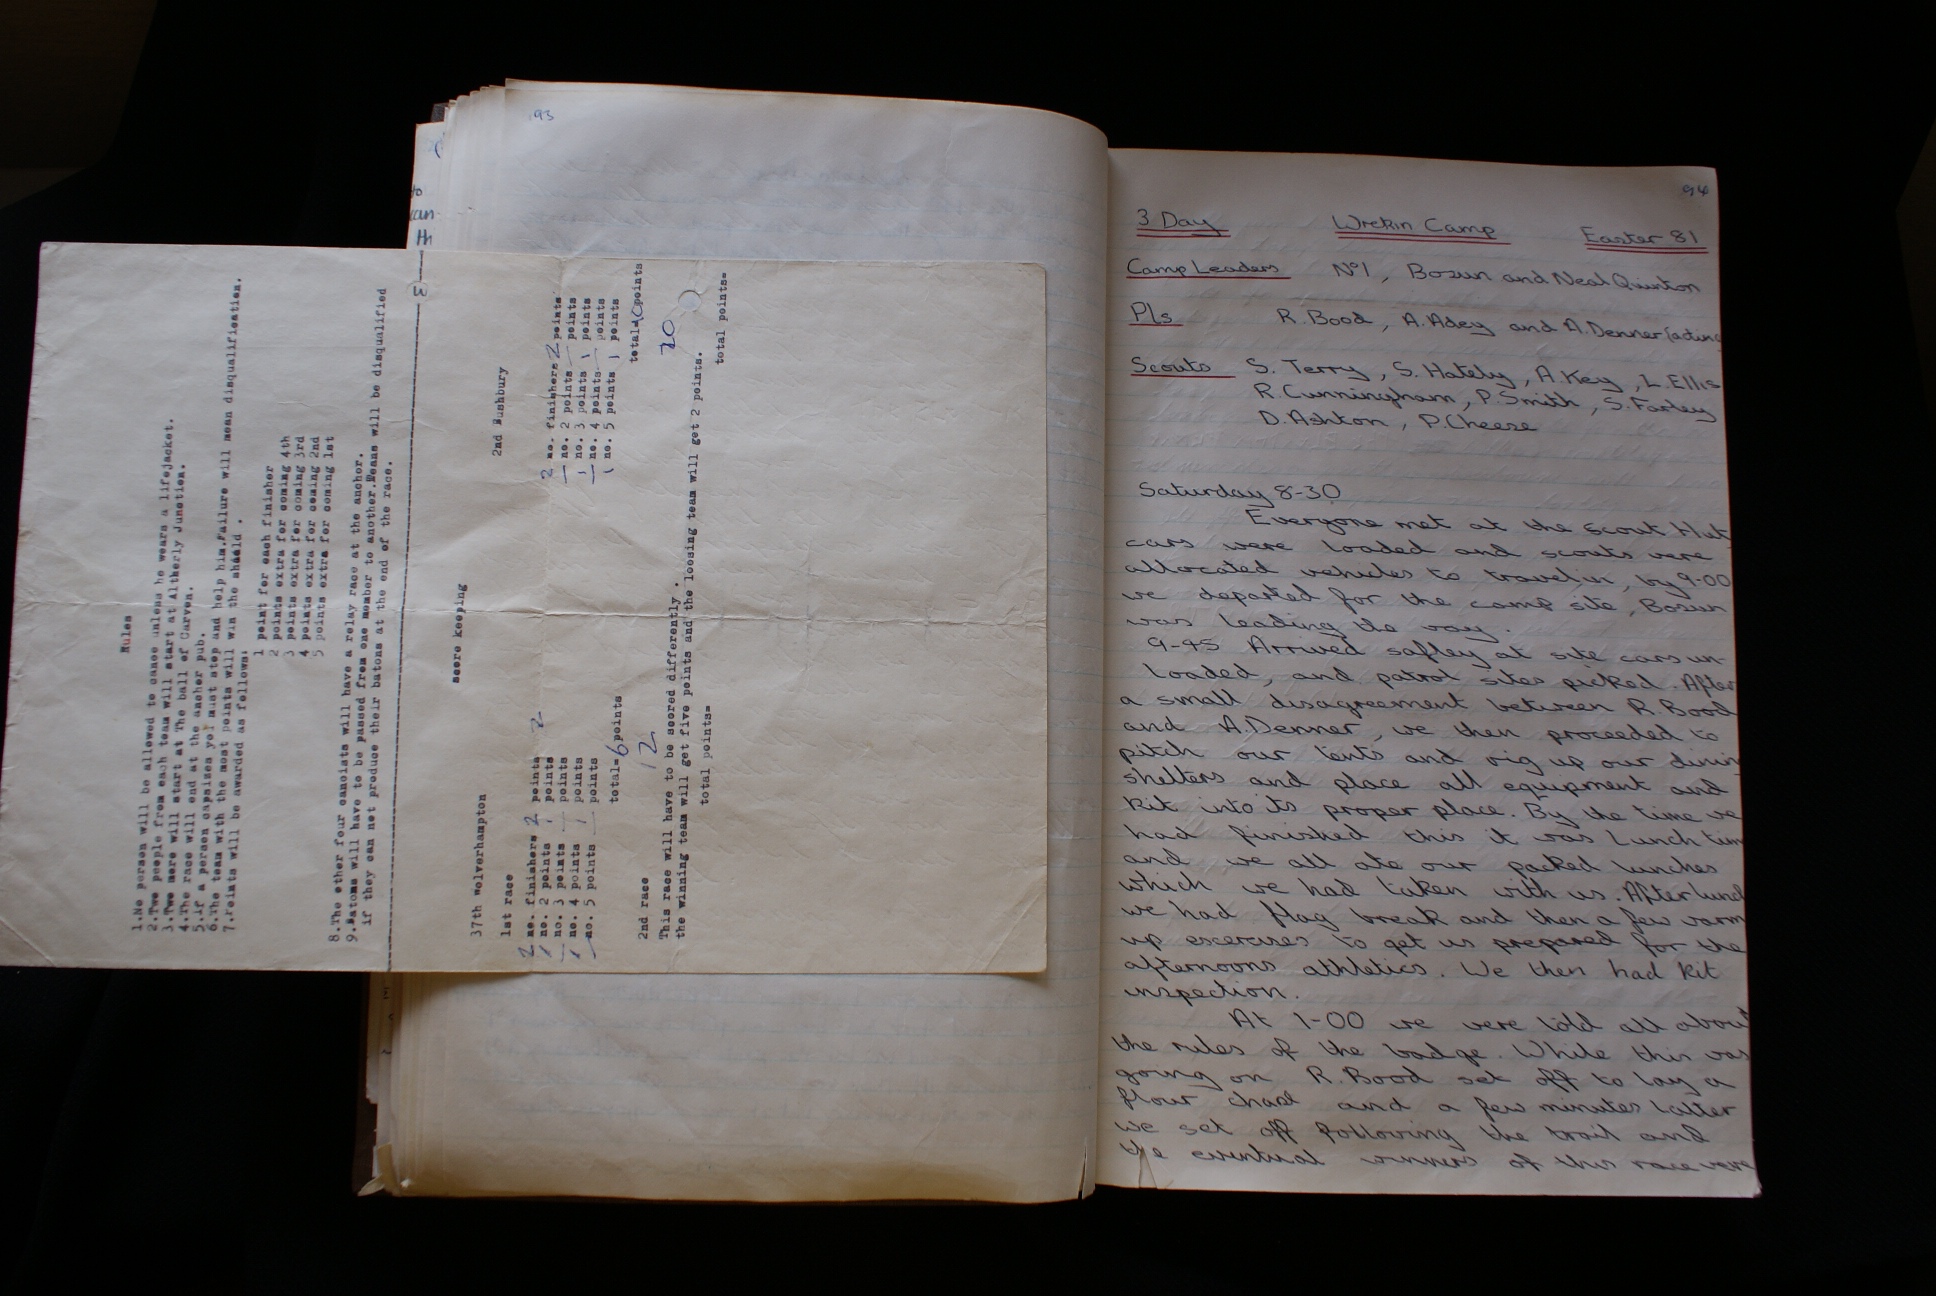 93
to
can
th
3
Rules
1.No person will be allowed to canoe unless he wears a lifejacket.
2.Two people from each team will start at Altherly Junction.
3.Two more will start at The ball of Carven.
4.The race will end at the ancher pub.
5.if a person capsizes you must stop and help him.Failure will mean disqualification.
6.The team with the most points will win the sheild .
7.Points will be awarded as follows:
1 point for each finisher
2 points extra for coming 4th
3 points extra for coming 3rd
4 points extra for coming 2nd
5 points extra for coming 1st
8.The other four canoists will have a relay race at the anchor.
9.Batons will have to be passed from one member to another.Teams will be disqualified
if they can not produce their batons at the end of the race.
score keeping
37th wolverhampton
2nd Bushbury
1st race
2 no. finishers 2 points 2
1 no. 2 points 1 points
— no. 3 points — points
1 no. 4 points 1 points
— no. 5 points — points
total=6points
12
2 no. finishers 2 points
— no. 2 points — points
1 no. 3 points 1 points
— no. 4 points — points
1 no. 5 points 1 points
total=10points
20
2nd race
This race will have to be scored differently .
the winning team will get five points and the loosing team will get 2 points.
total points=
total points=
94
3 Day Wrekin Camp Easter 81
Camp Leaders Nº1, Bosun and Neal Quinton
Pls R.Bood, A.Adey and A.Denner (acting
Scouts S.Terry, S.Hately, A.Key, L.Ellis
R.Cunningham, P.Smith, S.Farley
D.Ashton, P.Cheese
Saturday 8-30
Everyone met at the scout Hut
cars were loaded and scouts were
allocated vehicles to travel in, by 9-00
we departed for the camp site, Bosun
was leading the way.
9-45 Arrived safley at site cars un-
loaded, and patrol sites picked. After
a small disagreement between R.Bood
and A.Denner, we then proceeded to
pitch our tents and rig up our dinin
shelters and place all equipment and
kit into its proper place. By the time we
had finished this it was Lunch tim
and we all ate our packed lunches
which we had taken with us. After lunch
we had flag break and then a few warm
up excercises to get us prepared for the
afternoons athletics. We then had kit
inspection.
At 1-00 we were told all about
the rules of the badge. While this was
going on R.Bood set off to lay a
flour chase and a few minutes latter
we set off following the trail and
the eventual winners of this race were